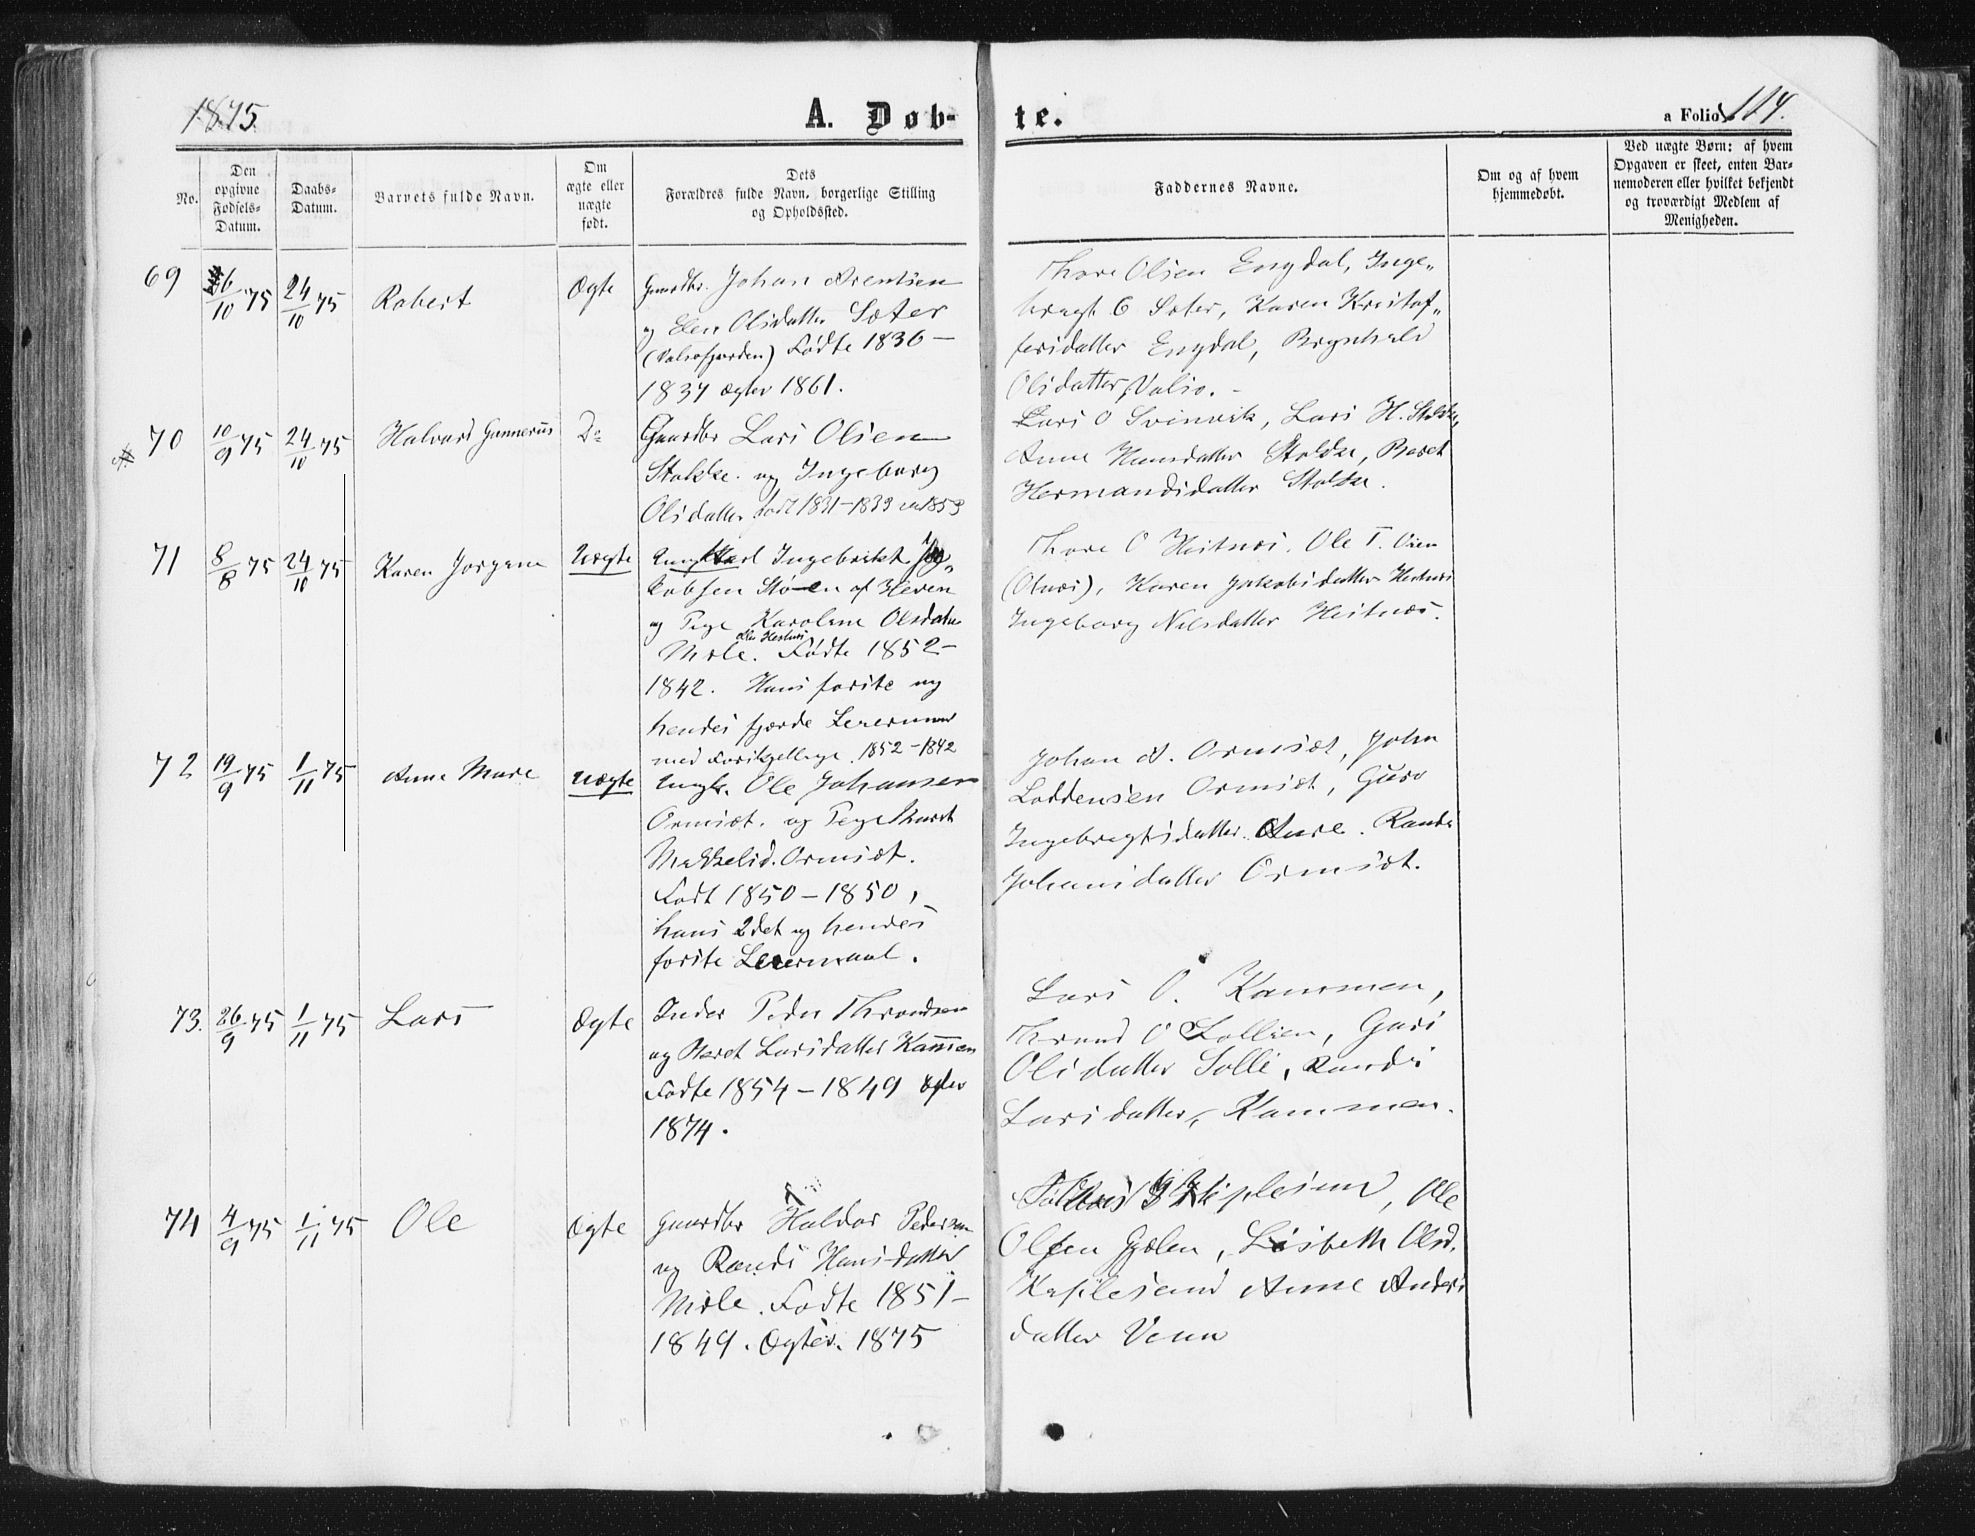 1875.
A. Døb-
te.
a Folio 114.
No.
Den
opgivne
Fødsels-
Datum.
Daabs-
Datum.
Barnets fulde Navn.
Om
ægte eller
uægte
født.
Dets
Forældres fulde Navn, borgerlige Stilling
og Opholdssted.
Faddernes Navne.
Om og af hvem
hjemmedøbt.
Ved uægte Børn: af hvem
Opgaven er skeet, enten Bar-
nemoderen eller hvilket bekjendt
og troværdigt Medlem af
Menigheden.
69
6/10 75
24/10 75
Robert
Ægte
Gaardbr. Johan Arentsen
og Elen Olsdatter Sæter
(Valsøfjorden) Födte 1836 –
1837 ægtev 1861.
Thore Olsen Engdal, Inge„
bregt O Sæter, Karen Kristof„
fersdatter Engdal, Brynhild
Olsdatter, Valsø. –
70
10/9 75
24/10 75
Halvard Gunnerus
Do
Gaardbr Lars Olsen
Stokke. og Ingeborg
Olsdatter født 1831 – 1833 1853
Lars O Svinvik, Lars H. Stokke,
Anne Hansdatter Stokke, Beret
Hermandsdatter Stokke.
71
8/8 75
24/10 75
Karen Jørgine
Uægte
Ungkarl Ingebrikt Ja„
kobsen Støen af Heven
og Pige Karoline Olsdatter
Mole. Födte 1852 –
1842. Hans første og
hendes fjerde Leiermaal
med 1852 – 1842
Thore O Hestnes. Ole T. Oien
(Otnes), Karen Jakobsdatter Hestnes
Ingeborg Nilsdatter Hestnes.
72
19/9 75
1/11 75
Anne Mare
Uægte
Ungk. Ole Johansen
Ormset. og Pige Maret
Mekkelsd. Ormset.
Födt 1850 – 1850,
hans 2det og hendes
første Leiermaal.
Johan A. Ormset, John
Loddensen Ormset, Guro
Ingebregtsdatter Aure. Randi
Johansdatter Ormset.
73.
26/9 75
1/11 75
Lars
Ægte
Inder Peder Throndsen
og Beret Larsdatter Kammen
Födte 1854 – 1849 ægtev
1874.
Lars O. Kammen,
Thrond O Sollien, Guri
Olsdatter Solli, Randi
Larsdatter, Kammen.
74
4/9 75
1/11 75
Ole
Ægte
Gaardbr Haldor Pedersen
og Randi Hansdatter
Mole. Födte 1851 –
1849. Ægtev. 1875
Ole
Olsen Gjølen, Lisbeth Olsd.
Anne Anders
datter Venn